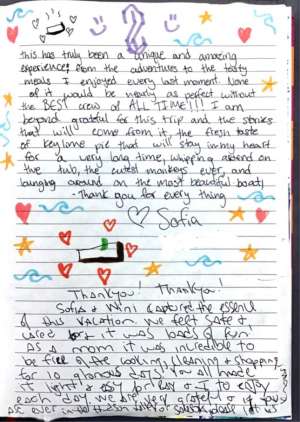 this has truly been a unique and amazing
experience; from the adventures to the tasty
meals I enjoyed every last moment. None
of it would be nearly as perfect without
the BEST crew of ALL TIME!!! I am
beyond grateful for this trip and the stories
that will come from it, the fresh taste
of keylime pie that will stay in my heart
for a very long time, whipping around on
the tub, the cutest monkeys ever, and
lounging around on the most beautiful boat!
- Thank you for every thing
Sofia
Thankyou! Thankyou!
Sofia & Mini captured the essence
of this vacation. We felt safe &
it was loads of fun!
As a mom it was incredible to
be free of the cooking, cleaning & shopping
for 10 glorious days. You all made
it light & easy for Lev & I to enjoy
each day. We are very grateful & if you
are ever in please let us